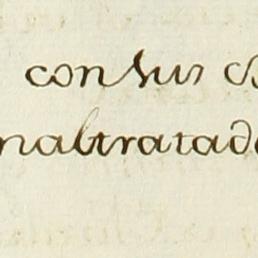 con sus
maltratad